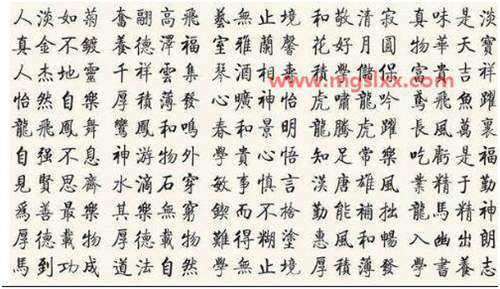 人淡如菊 奮翮高飛 藝無止境 和敬清寂 真味是淡
真金不鍍 養德澤福 室雅蘭馨 花好月圓 物華天寶
人杰地靈 千祥雲集 琴酒相 積學 富貴吉祥
www.mgslxx.com
怡然自樂 厚積薄發 心曠神怡 虎嘯龍吟 鳶飛魚躍
龍飛鳳舞 鸞鳳和鳴 春和景明 龍騰虎躍 長風萬裏
自强不息 神游物外 學貴心悟 知足常樂 吃虧是福
見賢思齊 水滴石穿 敏事慎言 漢唐雄風 業精于勤
爲善最樂 其樂無窮 鍥而不捨 勤能補拙 龍馬精神
厚德載物 厚德載物 難得糊塗 惠風和暢 入幽出朗
馬到功成 道法自然 學無止境 厚積薄發 學書養志